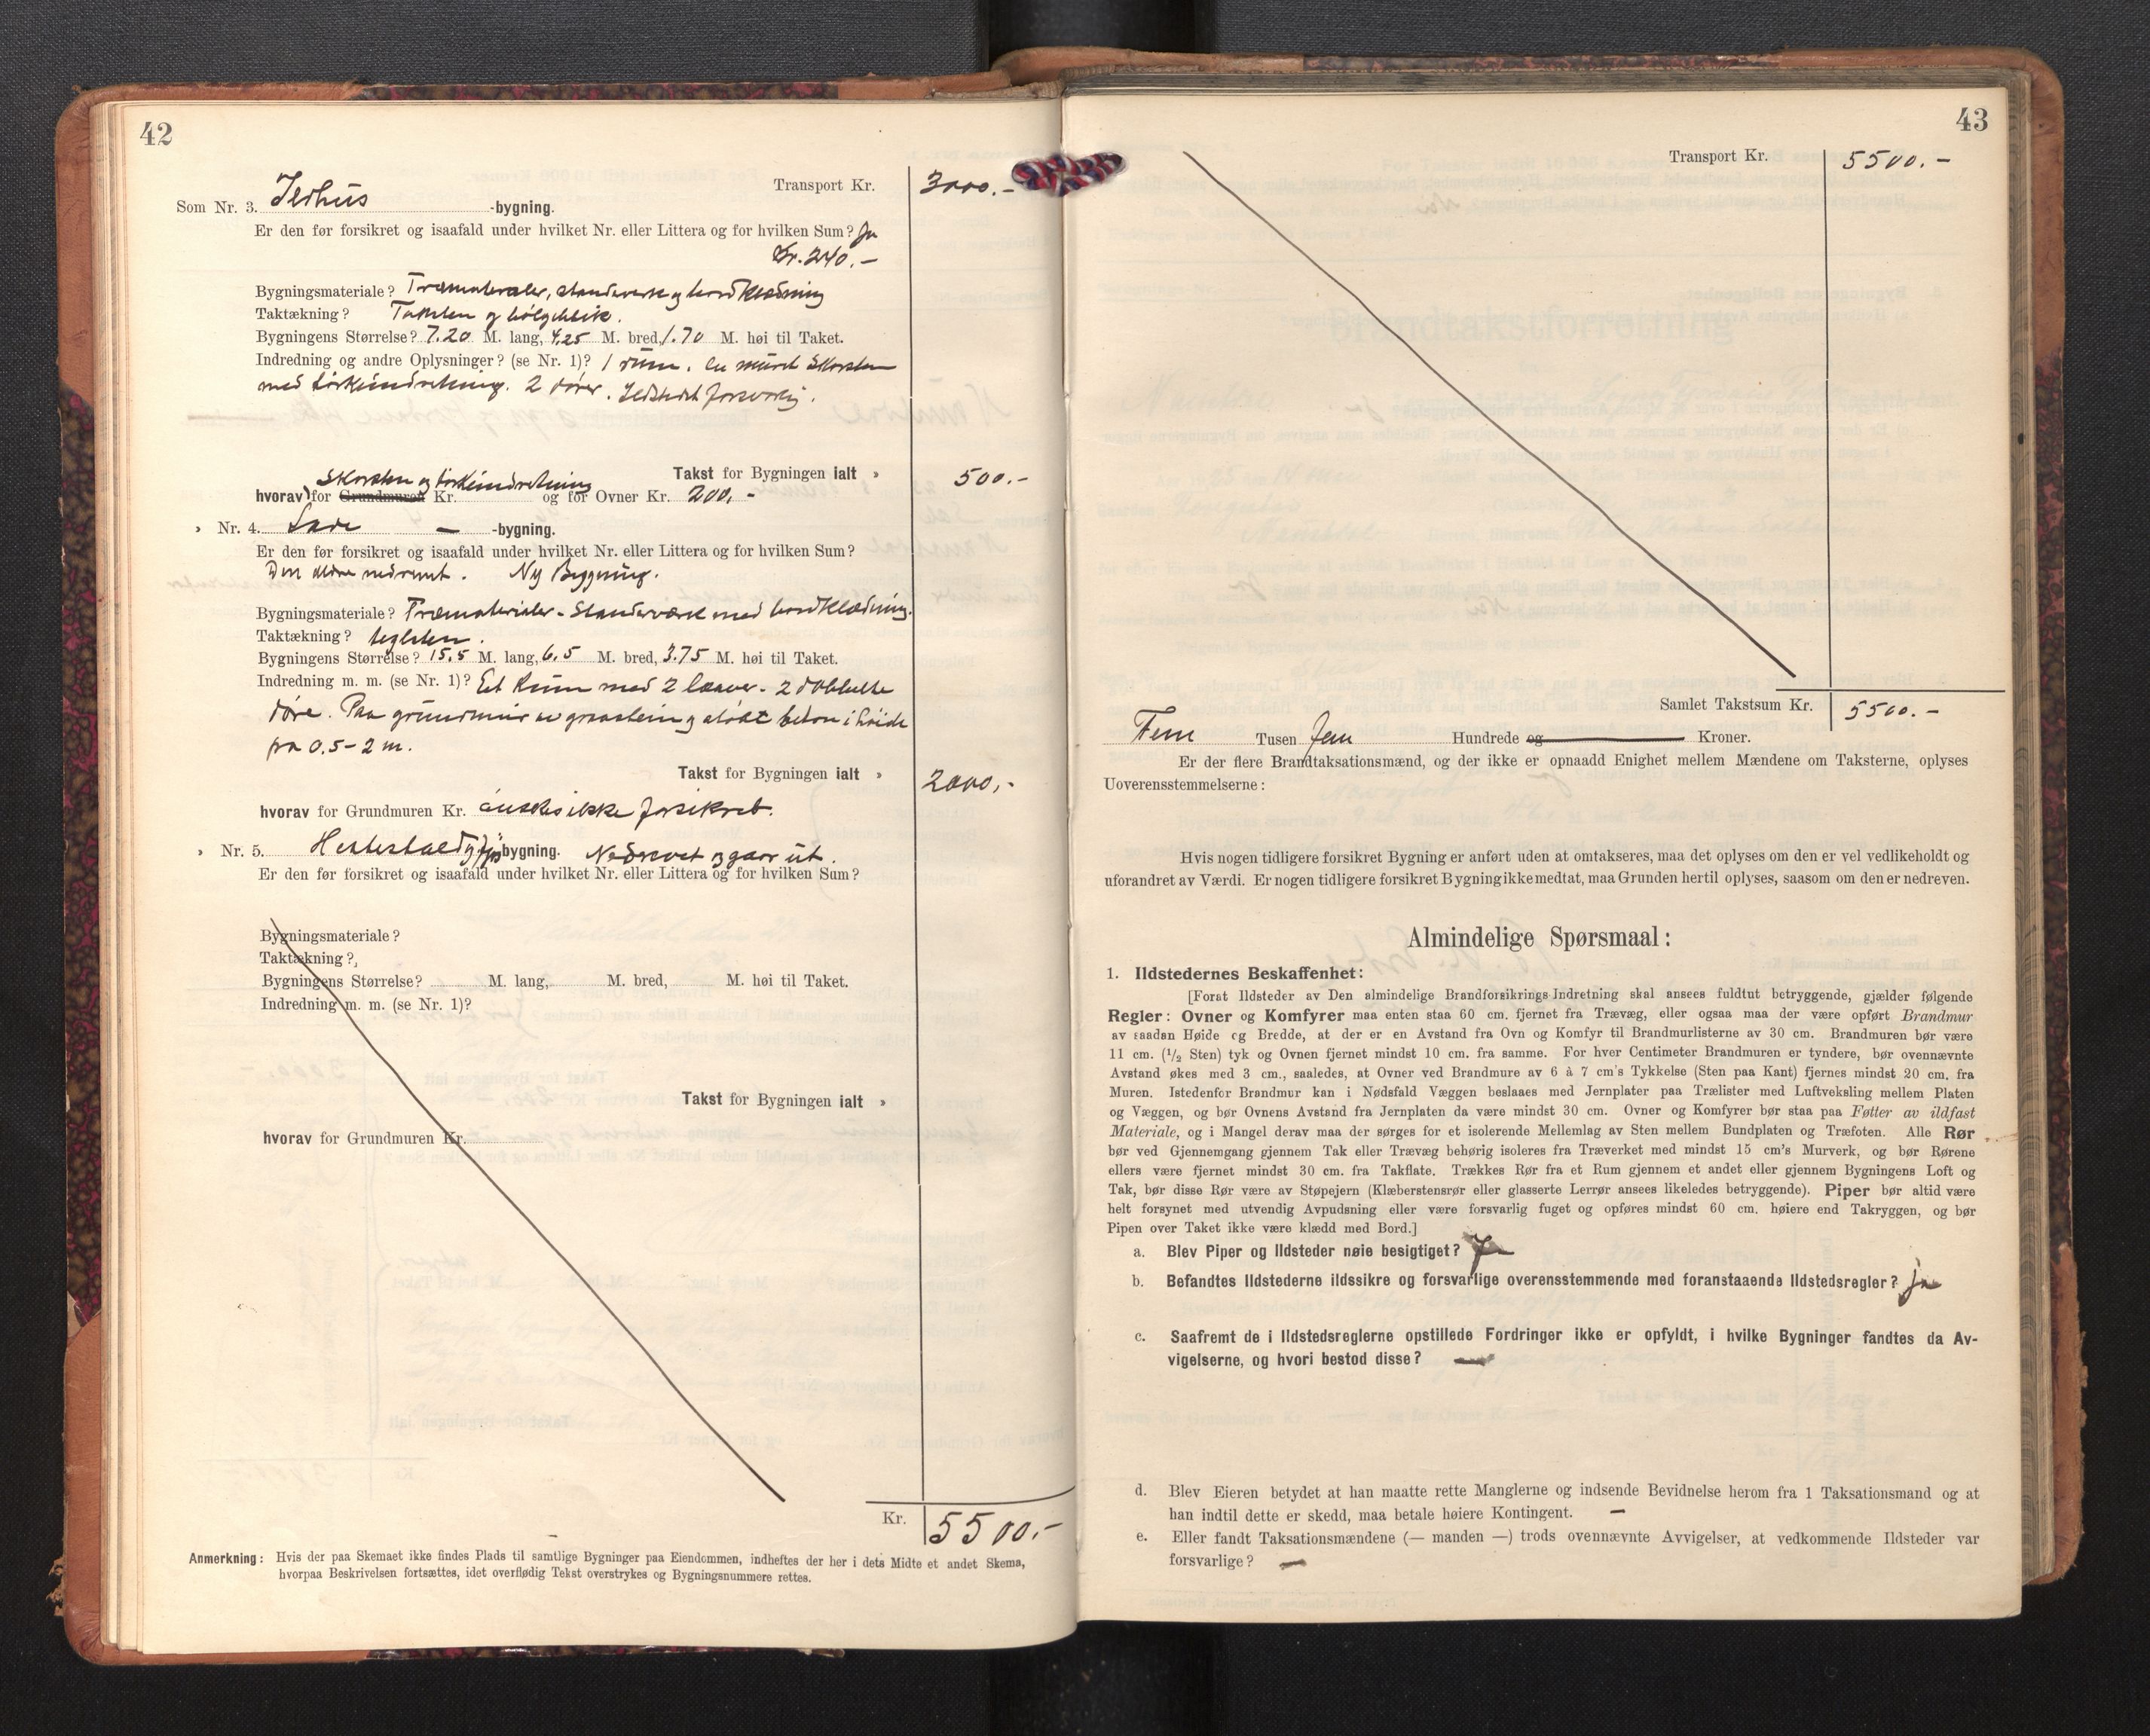 42
Transport Kr. 3000.-
Som Nr. 3. Ildhus -bygning.
Er den før forsikret og isaafald under hvilket Nr. eller Littera og for hvilken Sum? Ja
Kr. 240.-
Bygningsmateriale? Træmaterialer, standverk og bordklædning
Taktækning? Taksten og bølgeblik.
Bygningens Størrelse? 7.20 M. lang, 4.25 M. bred, 1.70 M. høi til Taket.
Indredning og andre Oplysninger? (se Nr. 1)? 1 rum. En muret Skorsten
med tørkeindretning. 2 dører. Ildstedet forsvarlig.
Takst for Bygningen ialt » 500.-
Skorsten og tørkeindretning
hvorav for Grundmuren Kr. og for Ovner Kr. 200.-
» Nr. 4. Lade — -bygning.
Er den før forsikret og isaafald under hvilket Nr. eller Littera og for hvilken Sum?
Den ældre nedrevet. Ny Bygning.
Bygningsmateriale? Træmaterialer - Standerværk med bordklædning.
Taktækning? teglsten.
Bygningens Størrelse? 15.5 M. lang, 6.5 M. bred, 3.75 M. høi til Taket.
Indredning m. m. (se Nr. 1)? Et Rum med 2 laaver - 2 dobbelte
døre. Paa grundmur av graastein og støbt beton i høide
fra 0.5-2 m.
Takst for Bygningen ialt » 2000,-
hvorav for Grundmuren Kr. ønskes ikke forsikret.
» Nr. 5. Hestestald og fjøs -bygning. Nedrevet og gaar ut.
Er den før forsikret og isaafald under hvilket Nr. eller Littera og for hvilken Sum?
Bygningsmateriale?
Taktækning?
Bygningens Størrelse? M. lang, M. bred, M. høi til Taket.
Indredning m. m. (se Nr. 1)?
Takst for Bygningen ialt »
hvorav for Grundmuren Kr.
Kr. 5500.-
Anmerkning: Hvis der paa Skemaet ikke findes Plads til samtlige Bygninger paa Eiendommen, indheftes der her i dets Midte et andet Skema,
hvorpaa Beskrivelsen fortsættes, idet overflødig Tekst overstrykes og Bygningsnummere rettes.
43
Transport Kr. 5500.-
Samlet Takstsum Kr. 5500.-
Fem Tusen fem Hundrede og Kroner.
Er der flere Brandtaksationsmænd, og der ikke er opnaadd Enighet mellem Mændene om Taksterne, oplyses
Uoverensstemmelserne:
Hvis nogen tidligere forsikret Bygning er anført uden at omtakseres, maa det oplyses om den er vel vedlikeholdt og
uforandret av Værdi. Er nogen tidligere forsikret Bygning ikke medtat, maa Grunden hertil oplyses, saasom om den er nedreven.
Almindelige Spørsmaal:
1. Ildstedernes Beskaffenhet:
[Forat Ildsteder av Den almindelige Brandforsikrings Indretning skal ansees fuldtut betryggende, gjælder følgende
Regler: Ovner og Komfyrer maa enten staa 60 cm. fjernet fra Trævæg, eller ogsaa maa der være opført Brandmur
av saadan Høide og Bredde, at der er en Avstand fra Ovn og Komfyr til Brandmurlisterne av 30 cm. Brandmuren bør være
11 cm. (1/2 Sten) tyk og Ovnen fjernet mindst 10 cm. fra samme. For hver Centimeter Brandmuren er tyndere, bør ovennævnte
Avstand økes med 3 cm., saaledes, at Ovner ved Brandmure av 6 à 7 cm's Tykkelse (Sten paa Kant) fjernes mindst 20 cm. fra
Muren. Istedenfor Brandmur kan i Nødsfald Væggen beslaaes med Jernplater paa Trælister med Luftveksling mellem Platen
og Væggen, og bør Ovnens Avstand fra Jernplaten da være mindst 30 cm. Ovner og Komfyrer bør staa paa Føtter av ildfast
Materiale, og i Mangel derav maa der sørges for et isolerende Mellemlag av Sten mellem Bundplaten og Træfoten. Alle Rør
bør ved Gjennemgang gjennem Tak eller Trævæg behørig isoleres fra Træverket med mindst 15 cm's Murverk, og bør Rørene
ellers være fjernet mindst 30 cm. fra Takflate. Trækkes Rør fra et Rum gjennem et andet eller gjennem Bygningens Loft og
Tak, bør disse Rør være av Støpejern (Klæberstensrør eller glasserte Lerrør ansees likeledes betryggende). Piper bør altid være
helt forsynet med utvendig Avpudsning eller være forsvarlig fuget og opføres mindst 60 cm. høiere end Takryggen, og bør
Pipen over Taket ikke være klædd med Bord.]
a. Blev Piper og Ildsteder nøie besigtiget? Ja
b. Befandtes Ildstederne ildssikre og forsvarlige overensstemmende med foranstaaende Ildstedsregler? Ja
c. Saafremt de i Ildstedsreglerne opstillede Fordringer ikke er opfyldt, i hvilke Bygninger fandtes da Av-
vigelserne, og hvori bestod disse? —
d. Blev Eieren betydet at han maatte rette Manglerne og indsende Bevidnelse herom fra 1 Taksationsmand og at
han indtil dette er skedd, maa betale høiere Kontingent. —
e. Eller fandt Taksationsmændene (— manden —) trods ovennævnte Avvigelser, at vedkommende Ildsteder var
forsvarlige? —